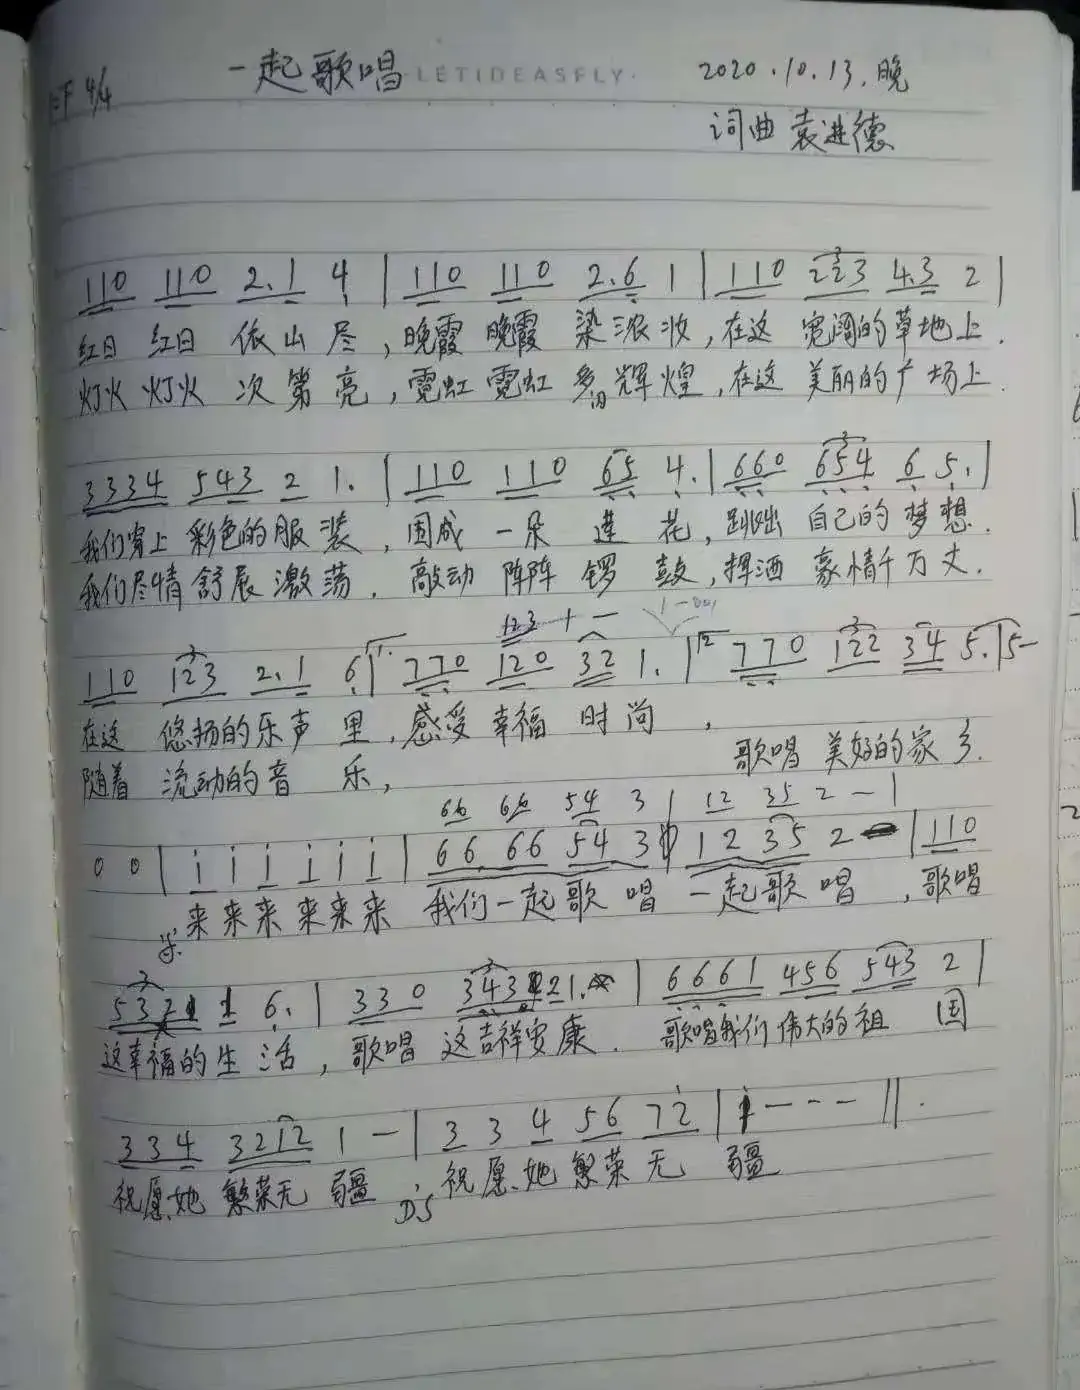 一起歌唱 ·LETIDEASFLY· 2020.10.13.晚
1=F 4/4
词曲 袁进德
110 110 2.1 4 | 110 110 2.6 1 | 110 223 4.3 2 |
红日 红日 依山尽,晚霞 晚霞 染浓妆,在这 宽阔的草地上.
灯火 灯火 次第亮,霓虹 霓虹 多辉煌,在这 美丽的广场上.
3334 543 2 1. | 110 110 65 4. | 660 654 6 5. |
我们穿上 彩色的服装,围成 一朵 莲花,跳出 自己的梦想.
我们尽情 舒展激荡. 敲动 阵阵 锣鼓,挥洒 豪情千万丈.
123 1 —
110 123 2.1 6 | 1. 770 120 32 1. | 2 770 122 34 5. | 5—
在这 悠扬的乐声里,感受 幸福 时尚,
歌唱 美好的家乡.
随着 流动的音乐,
66 66 54 3 | 12 35 2 — |
0 0 | i i i i i i | 66 66 54 3 | 12 35 2 — | 110
来来来来来来 我们一起歌唱 一起歌唱,歌唱
532 1 1 6. | 330 343 21. | 6661 456 543 2 |
这幸福的生活,歌唱 这吉祥安康. 歌唱我们 伟大的祖国
334 3212 1 — | 3 3 4 56 72 | i — — — ||.
祝愿她 繁荣无疆,祝愿她 繁荣无疆
DS